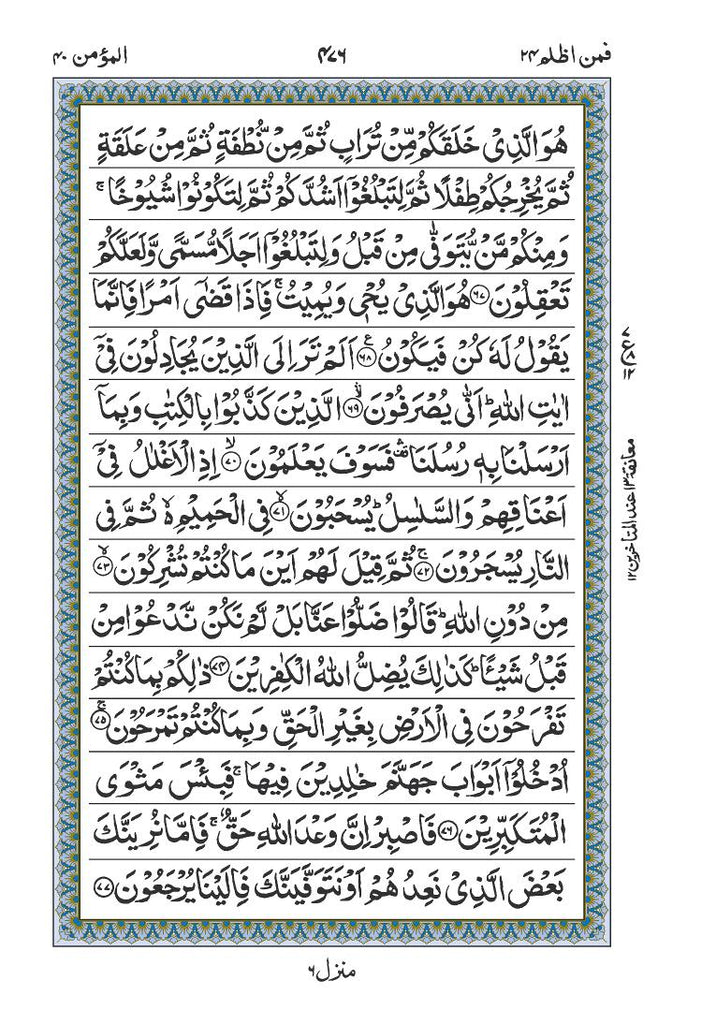 المؤمن ٤٠
٤٧٦
فمن اظلم ٢٤
هُوَ الَّذِیْ خَلَقَكُمْ مِّنْ تُرَابٍ ثُمَّ مِنْ نُّطْفَةٍ ثُمَّ مِنْ عَلَقَةٍ
ثُمَّ یُخْرِجُكُمْ طِفْلًا ثُمَّ لِتَبْلُغُوْۤا اَشُدَّكُمْ ثُمَّ لِتَكُوْنُوْا شُیُوْخًا ۚ
وَ مِنْكُمْ مَّنْ یُّتَوَفّٰی مِنْ قَبْلُ وَ لِتَبْلُغُوْۤا اَجَلًا مُّسَمًّی وَّ لَعَلَّكُمْ
تَعْقِلُوْنَ ﴿٦٧﴾ هُوَ الَّذِیْ یُحْیٖ وَ یُمِیْتُ ۚ فَاِذَا قَضٰۤی اَمْرًا فَاِنَّمَا
یَقُوْلُ لَهٗ كُنْ فَیَكُوْنُ ﴿٦٨﴾ اَلَمْ تَرَ اِلَی الَّذِیْنَ یُجَادِلُوْنَ فِیْۤ
اٰیٰتِ اللّٰهِ ؕ اَنّٰی یُصْرَفُوْنَ ﴿٦٩﴾ الَّذِیْنَ كَذَّبُوْا بِالْكِتٰبِ وَ بِمَاۤ
اَرْسَلْنَا بِهٖ رُسُلَنَا ۛ فَسَوْفَ یَعْلَمُوْنَ ﴿٧٠﴾ اِذِ الْاَغْلٰلُ فِیْۤ
اَعْنَاقِهِمْ وَ السَّلٰسِلُ ؕ یُسْحَبُوْنَ ﴿٧١﴾ فِی الْحَمِیْمِ ۙ۬ ثُمَّ فِی
النَّارِ یُسْجَرُوْنَ ﴿٧٢﴾ ثُمَّ قِیْلَ لَهُمْ اَیْنَ مَا كُنْتُمْ تُشْرِكُوْنَ ﴿٧٣﴾
مِنْ دُوْنِ اللّٰهِ ؕ قَالُوْا ضَلُّوْا عَنَّا بَلْ لَّمْ نَكُنْ نَّدْعُوْا مِنْ
قَبْلُ شَیْـًٔا ؕ كَذٰلِكَ یُضِلُّ اللّٰهُ الْكٰفِرِیْنَ ﴿٧٤﴾ ذٰلِكُمْ بِمَا كُنْتُمْ
تَفْرَحُوْنَ فِی الْاَرْضِ بِغَیْرِ الْحَقِّ وَ بِمَا كُنْتُمْ تَمْرَحُوْنَ ﴿٧٥﴾
اُدْخُلُوْۤا اَبْوَابَ جَهَنَّمَ خٰلِدِیْنَ فِیْهَا ۚ فَبِئْسَ مَثْوَی
الْمُتَكَبِّرِیْنَ ﴿٧٦﴾ فَاصْبِرْ اِنَّ وَعْدَ اللّٰهِ حَقٌّ ۚ فَاِمَّا نُرِیَنَّكَ
بَعْضَ الَّذِیْ نَعِدُهُمْ اَوْ نَتَوَفَّیَنَّكَ فَاِلَیْنَا یُرْجَعُوْنَ ﴿٧٧﴾
معانقة ١٣ عند المتاخرين ١٢
منزل ٦